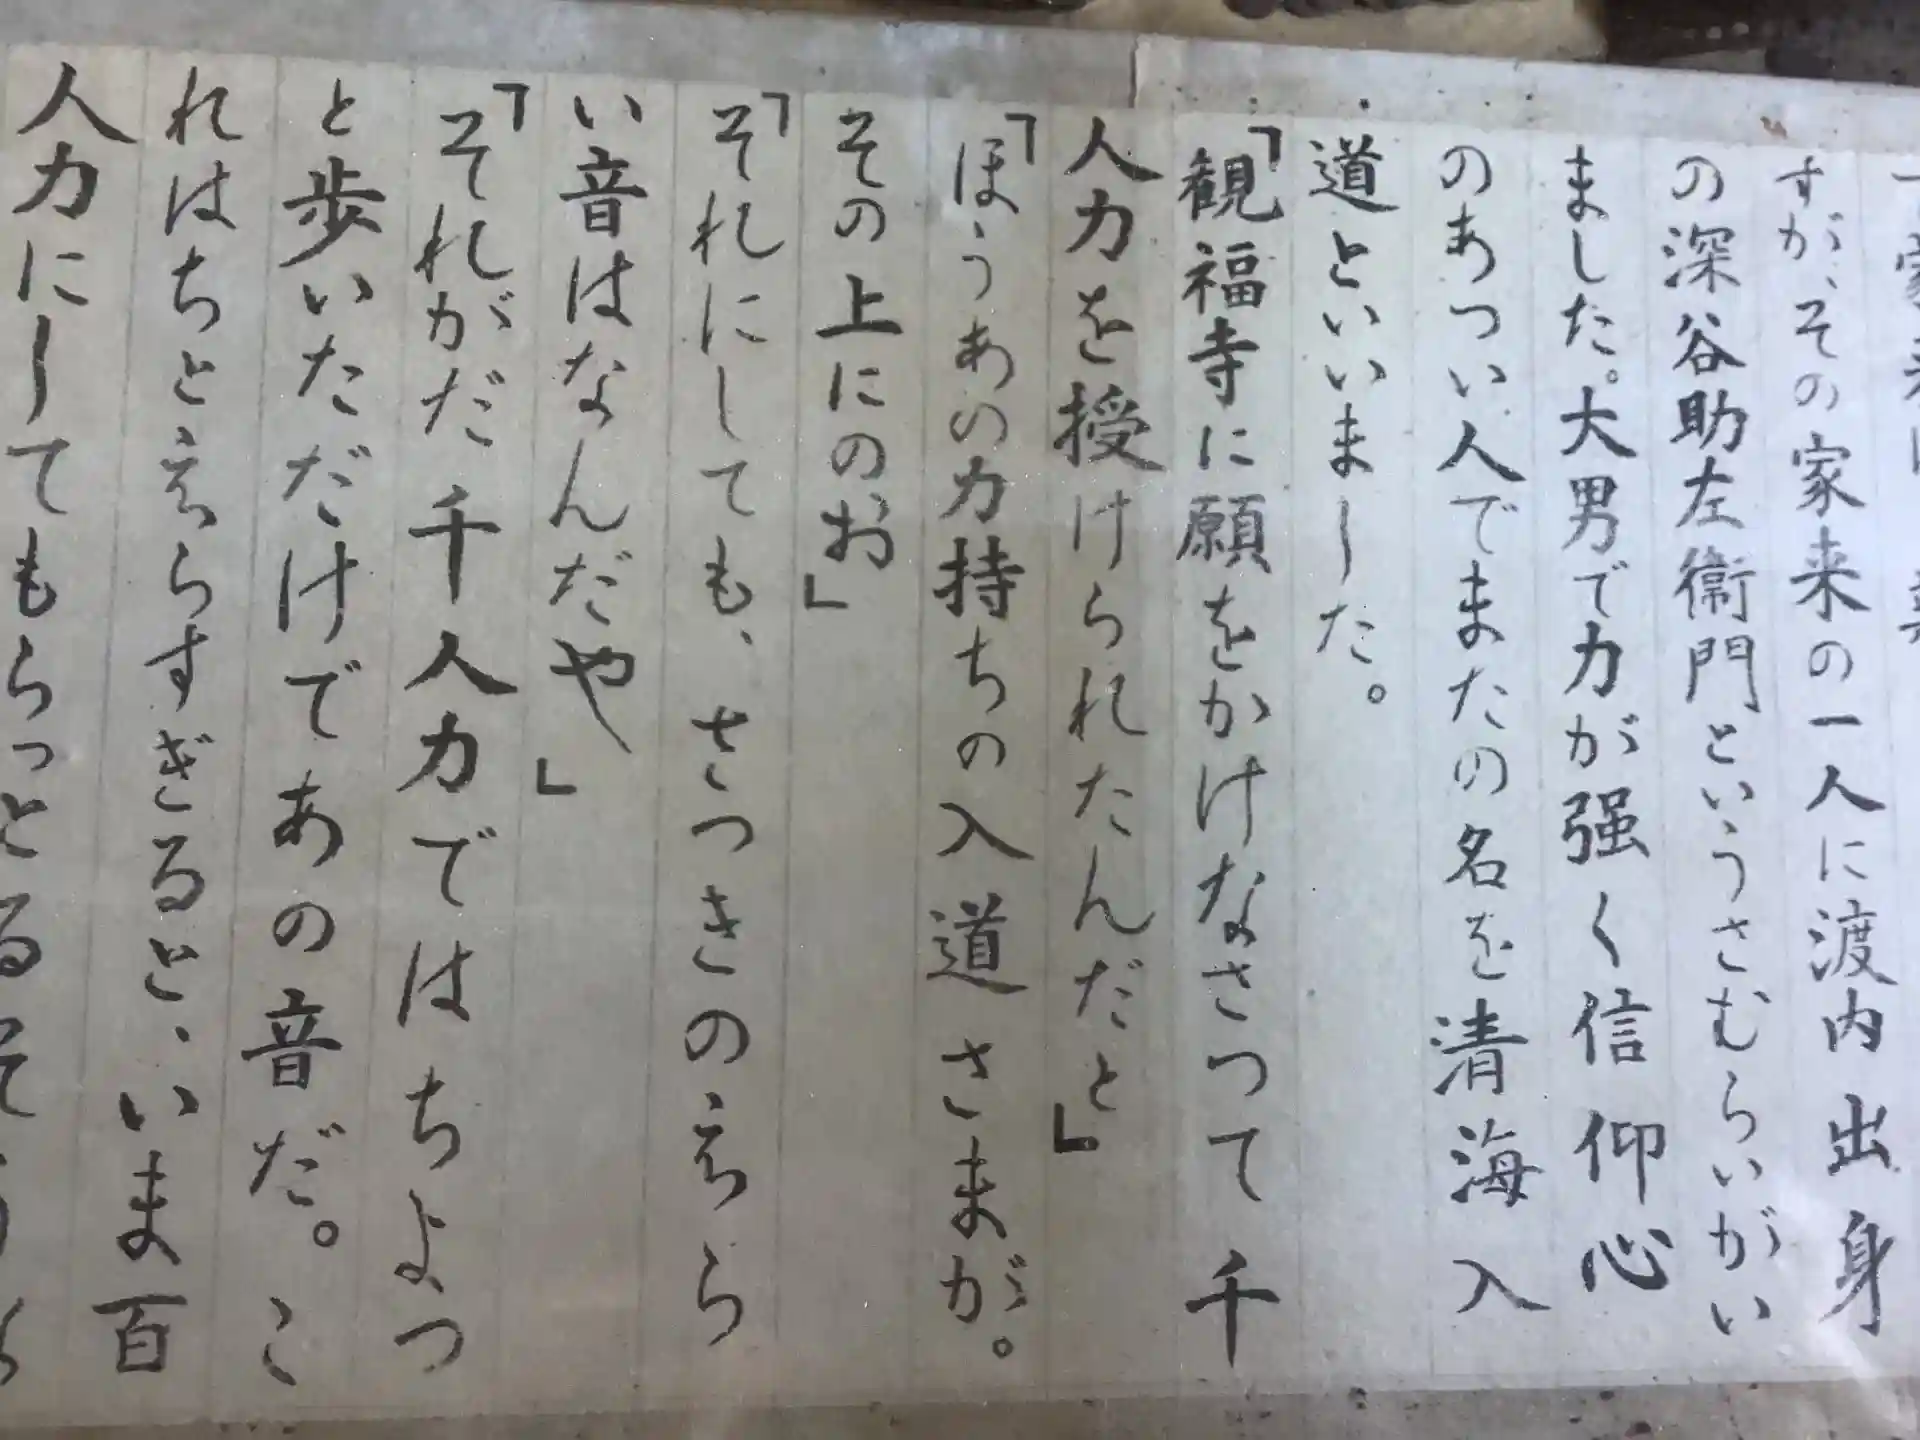 すが、その家来の一人に渡内出身
の深谷助左衛門というさむらいがい
ました。大男で力が強く信仰心
のあつい人でまたの名を清海入
道といいました。
「観福寺に願をかけなさって千
人力を授けられたんだと」
「ほうあの力持ちの入道さまが。
その上にのお」
「それにしても、さっきのえら
い音はなんだや」
「それがだ千人力ではちよっ
と歩いただけであの音だ。こ
れはちとえらすぎると、いま百
人力にしてもらっとる